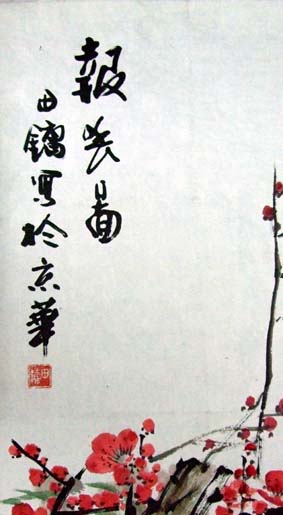 報春圖
田鏞寫於京華